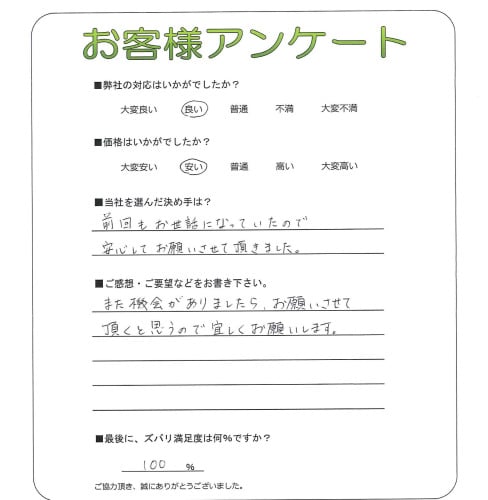 お客様アンケート
■弊社の対応はいかがでしたか？
大変良い 良い 普通 不満 大変不満
■価格はいかがでしたか？
大変安い 安い 普通 高い 大変高い
■当社を選んだ決め手は？
前回もお世話になっていたので
安心してお願いさせて頂きました。
■ご感想・ご要望などをお書き下さい。
また機会がありましたら、お願いさせて
頂くと思うので宜しくお願いします。
■最後に、ズバリ満足度は何％ですか？
100 ％
ご協力頂き、誠にありがとうございました。